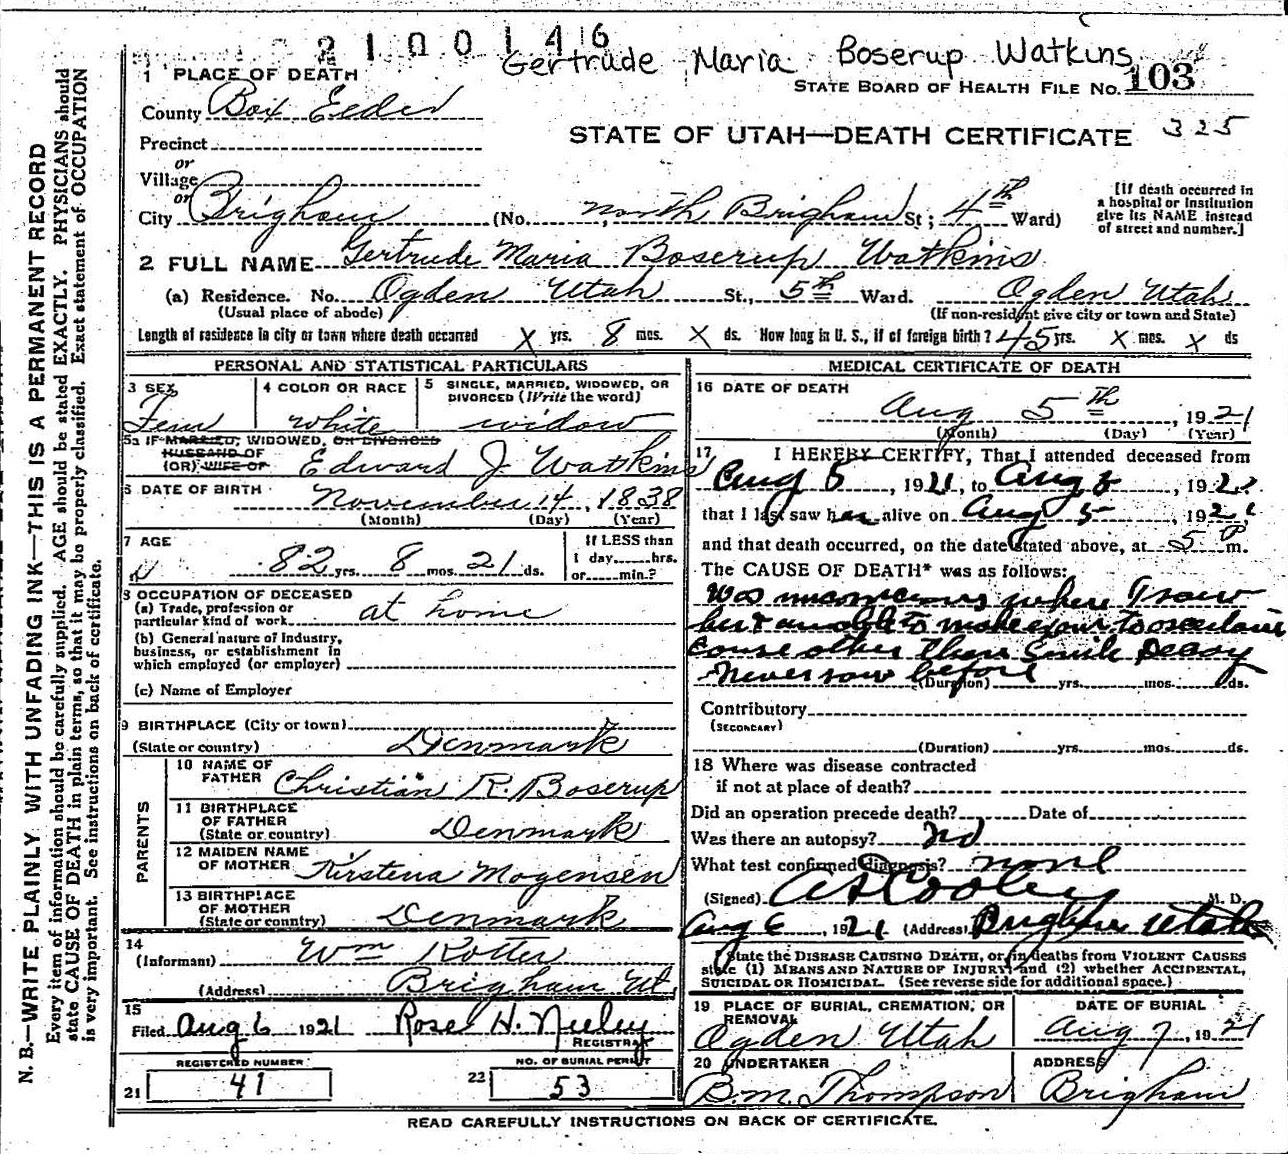 2100146
Gertrude Maria Boserup Watkins
1 PLACE OF DEATH
STATE BOARD OF HEALTH FILE NO. 103
County Box Elder
STATE OF UTAH—DEATH CERTIFICATE 325
Precinct
or
Village
or
City Brigham (No. North Brigham St; 4th Ward)
[If death occurred in
a hospital or institution
give its NAME instead
of street and number.]
2 FULL NAME Gertrude Maria Boserup Watkins
(a) Residence. No. Ogden Utah St., 5th Ward. Ogden Utah
(Usual place of abode) (If non-resident give city or town and State)
Length of residence in city or town where death occurred X yrs. 8 mos. X ds. How long in U. S., if of foreign birth? 45 yrs. X mos. X ds
PERSONAL AND STATISTICAL PARTICULARS
3 SEX
Fem
4 COLOR OR RACE
white
5 SINGLE, MARRIED, WIDOWED, OR
DIVORCED (Write the word)
widow
5a IF MARRIED, WIDOWED, OR DIVORCED
HUSBAND OF
(OR) WIFE OF Edward J Watkins
6 DATE OF BIRTH November 14, 1838
(Month) (Day) (Year)
7 AGE
82 yrs. 8 mos. 21 ds.
If LESS than
1 day hrs.
or min.?
8 OCCUPATION OF DECEASED
(a) Trade, profession or
particular kind of work at home
(b) General nature of Industry,
business, or establishment in
which employed (or employer)
(c) Name of Employer
9 BIRTHPLACE (City or town)
(State or country) Denmark
PARENTS
10 NAME OF
FATHER Christian R. Boserup
11 BIRTHPLACE
OF FATHER
(State or country) Denmark
12 MAIDEN NAME
OF MOTHER Kirstena Mogensen
13 BIRTHPLACE
OF MOTHER
(State or country) Denmark
14
(Informant) Wm Kotter
(Address) Brigham Ut.
15
Filed Aug 6 1921 Rose H. Neeley
REGISTRAR
REGISTERED NUMBER
21 41
NO. OF BURIAL PERMIT
22 53
MEDICAL CERTIFICATE OF DEATH
16 DATE OF DEATH
Aug 5th, 1921
(Month) (Day) (Year)
17 I HEREBY CERTIFY, That I attended deceased from
Aug 5, 1921, to Aug 5, 192
that I last saw her alive on Aug 5, 192
and that death occurred, on the date stated above, at 5 P m.
The CAUSE OF DEATH* was as follows:
Was unconscious when I saw
her & unable to make exam to ascertain
cause other than Senile Decay
Never saw before
(Duration) yrs. mos. ds.
Contributory
(SECONDARY)
(Duration) yrs. mos. ds.
18 Where was disease contracted
if not at place of death?
Did an operation precede death? Date of
Was there an autopsy? no
What test confirmed diagnosis? none
(Signed) A D Cooley M. D.
Aug 6, 1921 (Address) Brigham Utah
State the DISEASE CAUSING DEATH, or, in deaths from VIOLENT CAUSES
state (1) MEANS AND NATURE OF INJURY and (2) whether ACCIDENTAL,
SUICIDAL OR HOMICIDAL. (See reverse side for additional space.)
19 PLACE OF BURIAL, CREMATION, OR
REMOVAL
Ogden Utah
DATE OF BURIAL
Aug 7, 1921
20 UNDERTAKER
B. M. Thompson
ADDRESS
Brigham
READ CAREFULLY INSTRUCTIONS ON BACK OF CERTIFICATE.
N. B.—WRITE PLAINLY WITH UNFADING INK—THIS IS A PERMANENT RECORD
Every item of information should be carefully supplied. AGE should be stated EXACTLY. PHYSICIANS should
state CAUSE OF DEATH in plain terms, so that it may be properly classified. Exact statement of OCCUPATION
is very important. See instructions on back of certificate.